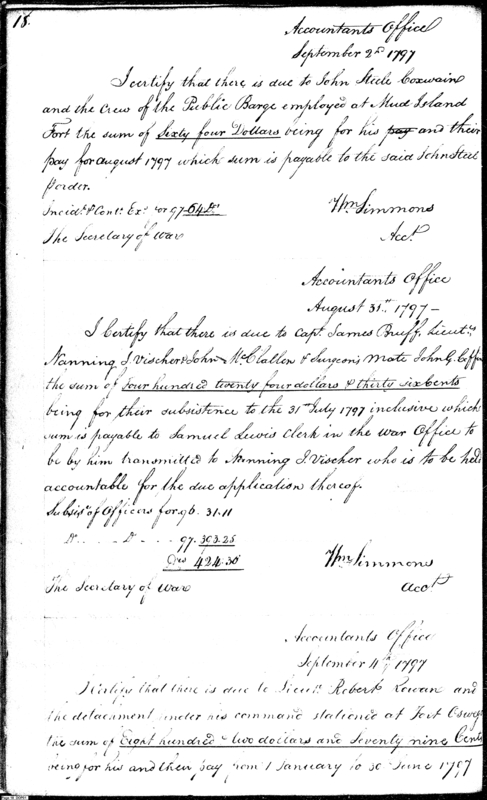 18.
Accountants Office
September 2d 1797
I certify that there is due to John Steele Coxwain
and the Crew of the Public Barge employed at Mud Island
Fort the sum of Sixty four Dollars being for his pay and their
pay for August 1797 which sum is payable to the said John Steel
or order.
Incidl. & Cont. Exs. for 97. 64 Ds.
Wm Simmons
The Secretary of War
Acct.
Accountants Office
August 31st 1797-
I Certify that there is due to Capt. James Bruff, Lieuts.
Nanning J. Vischer & John McClallen & Surgeons Mate John G. Coffin
the sum of four hundred twenty four dollars & thirty six Cents
being for their subsistence to the 31st July 1797 inclusive which
sum is payable to Samuel Lewis Clerk in the War Office to
be by him transmitted to Nanning J. Vischer who is to be held
accountable for the due application thereof.
Subsis. of Officers for 96. 31.11
Do. .... Do. .... 97. 393.25
424.36
Wm Simmons
The Secretary of War
Acct
Accountants Office
September 4th, 1797
I Certify that there is due to Lieut. Robert Rowan and
the detachment under his command stationed at Fort Oswego
the sum of Eight hundred & two dollars and Seventy nine Cents
being for his and their pay from 1 January to 30 June 1797